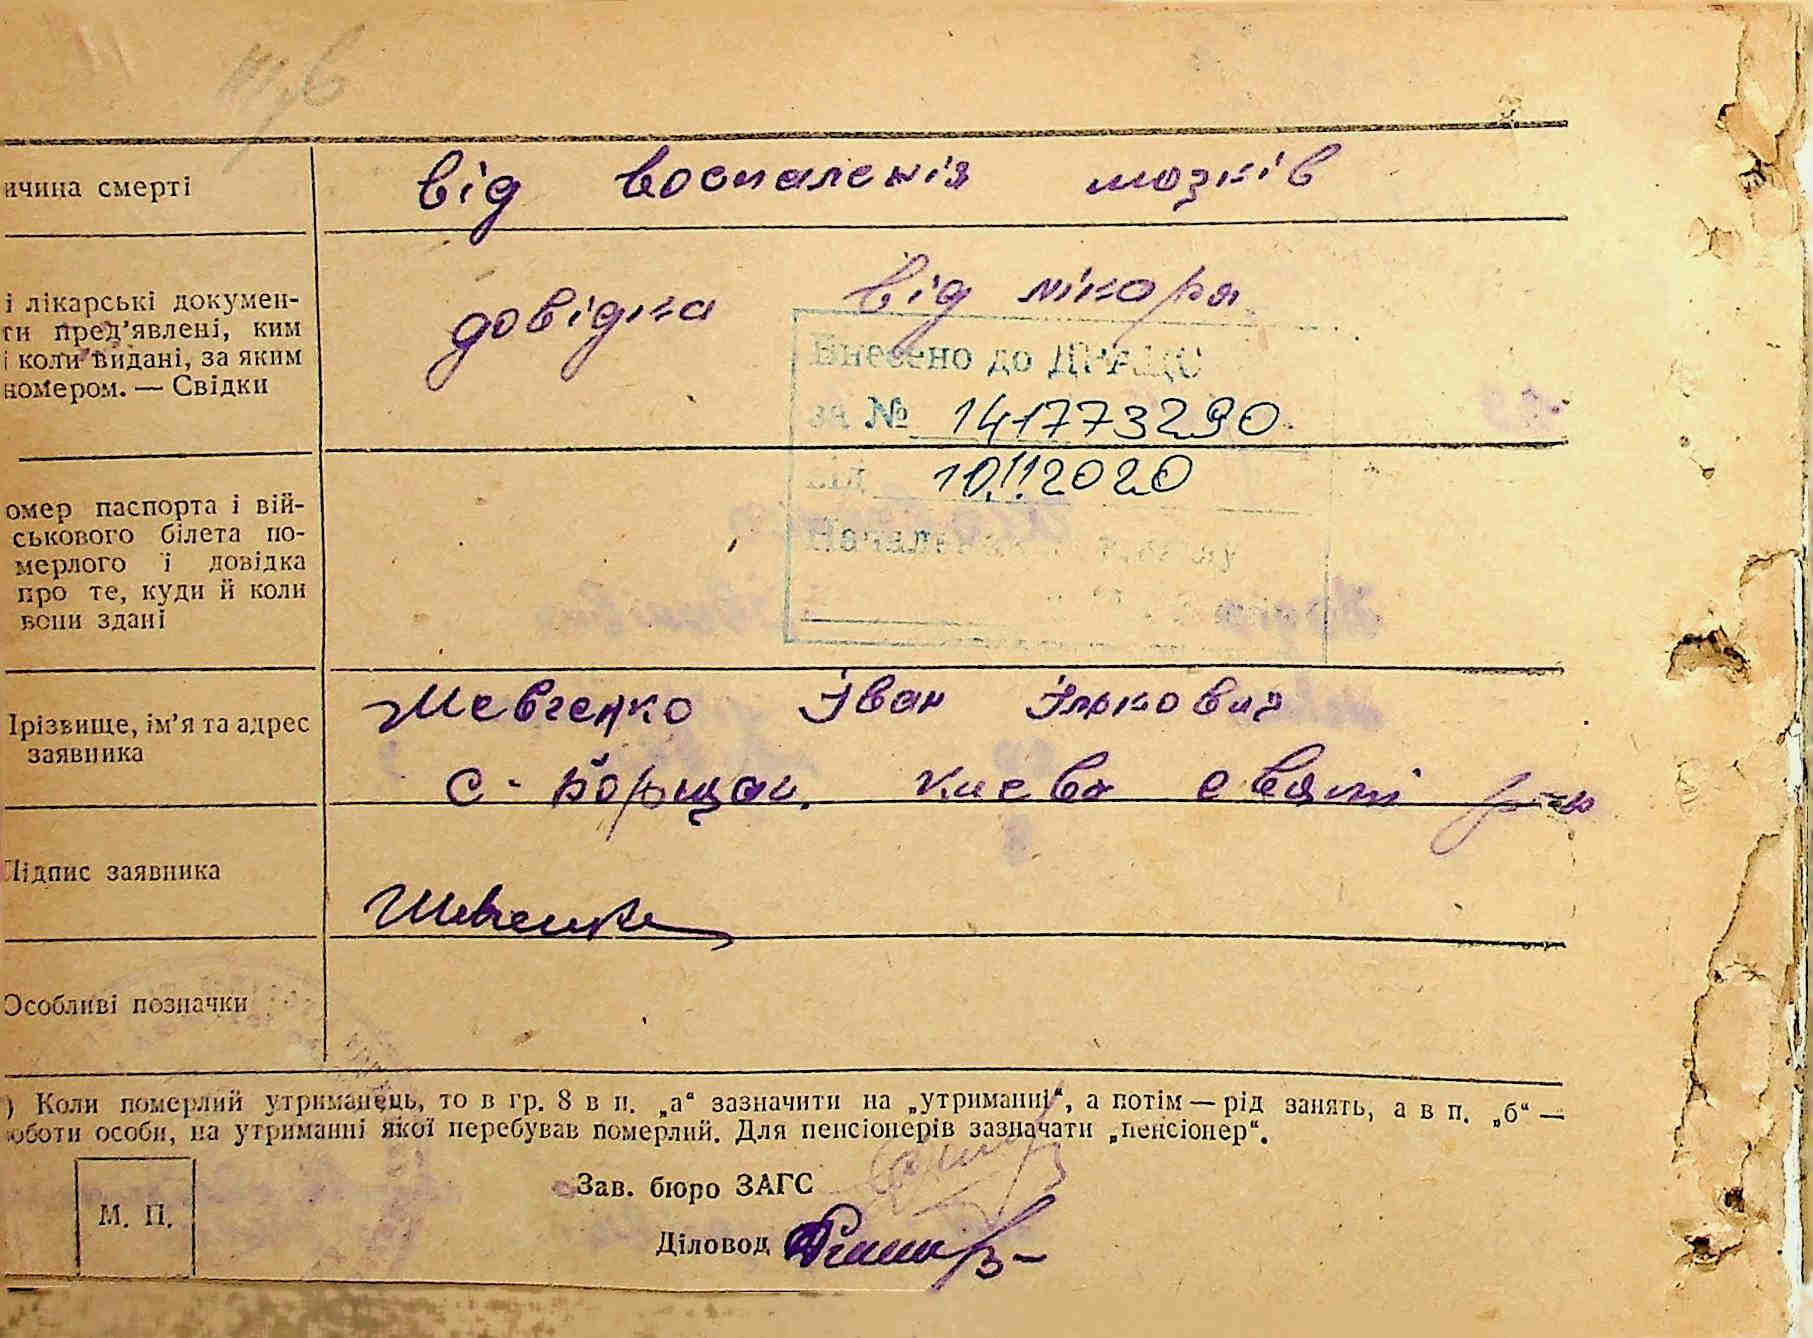 ичина смерті
від воспаленія мозків
і лікарські докумен-
ти пред’явлені, ким
і коли видані, за яким
номером. — Свідки
довідка від лікаря
Внесено до ДРАЦС
за № 141773290
від 10.11.2020
Начальник відділу
омер паспорта і вій-
ськового білета по-
мерлого і довідка
про те, куди й коли
вони здані
Прізвище, ім’я та адрес
заявника
Шевченко Іван Ількович
с. Борщаг. Києво Святош р-н
Підпис заявника
Шевченко
Особливі позначки
) Коли померлий утриманець, то в гр. 8 в п. „а“ зазначити на „утриманні“, а потім — рід занять, а в п. „б“ —
оботи особи, на утриманні якої перебував померлий. Для пенсіонерів зазначати „пенсіонер“.
М. П.
Зав. бюро ЗАГС
Діловод